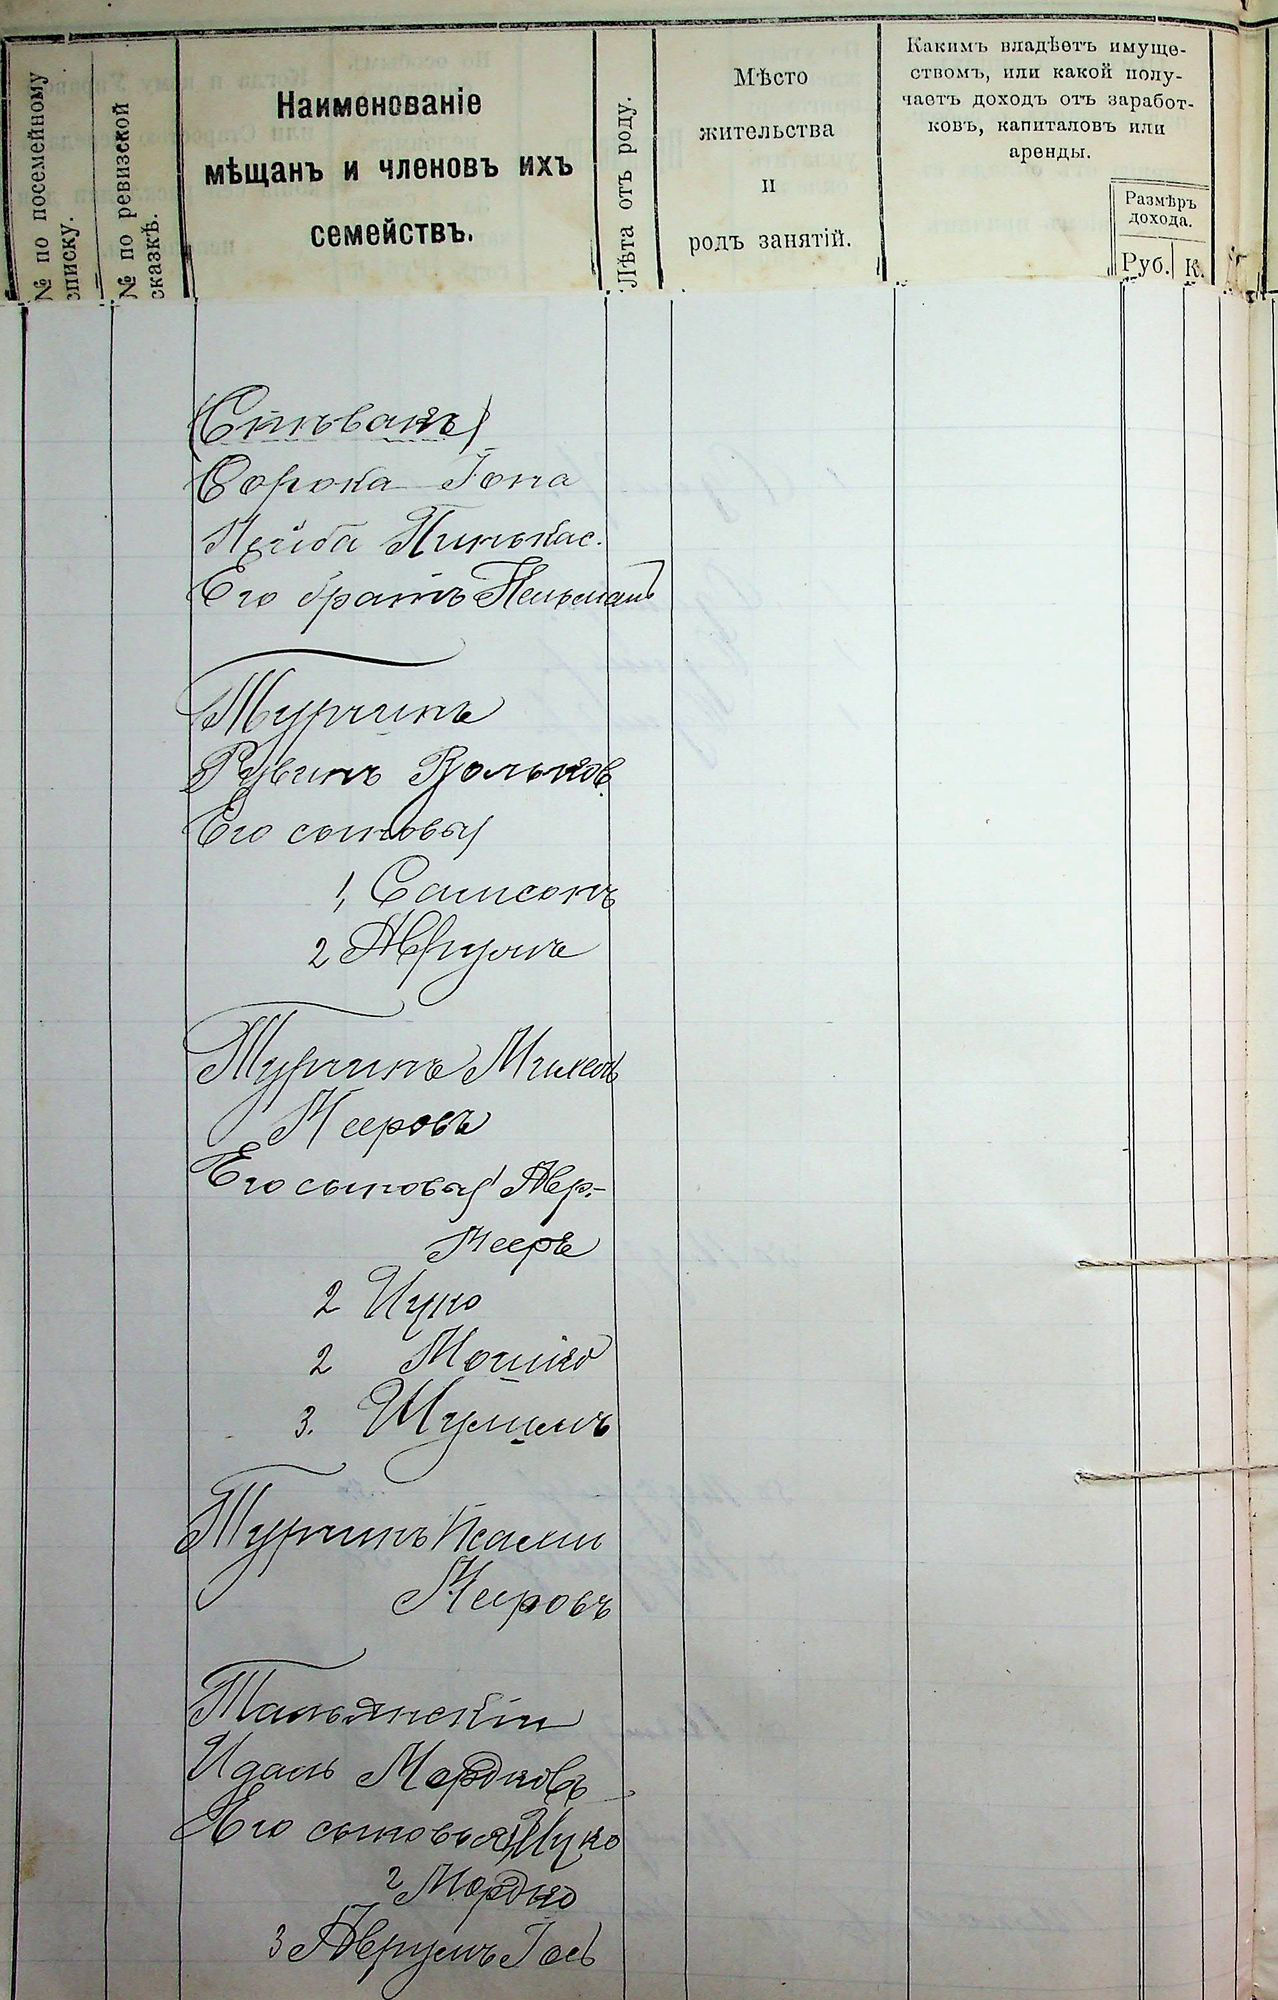 № по посемейному
списку.
№ по ревизской
сказкѣ.
Наименованіе
мѣщанъ и членовъ ихъ
семействъ.
Лѣта отъ роду.
Мѣсто
жительства
и
родъ занятій.
Какимъ владѣетъ имуще-
ствомъ, или какой полу-
чаетъ доходъ отъ заработ-
ковъ, капиталовъ или
аренды.
Размѣръ
дохода.
Руб.
К.
Сорока Іона
Лейба Пинькас.
Его братъ Кельманъ
Турчинъ
Рувинъ Вольков.
Его сыновья
1, Самсонъ
2 Аврумъ
Турчинъ Михель
Мееровъ
Его сыновья 1 Авр.-
Мееръ
2 Ицко
2 Мошко
3. Шулимъ
Турчинъ
Мееровъ
Тальянскій
Идаль Мордковъ
Его сыновья 1) Ицко
2 Мордко
3 Аврумъ Іось